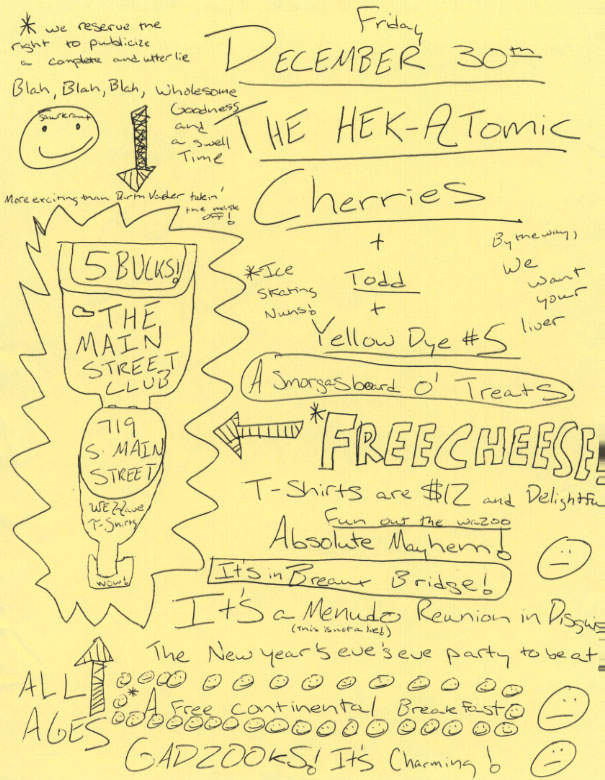 * we reserve the
right to publicize
a complete and utter lie
Blah, Blah, Blah, Wholesome
Goodness
and
a swell
Time
sawrkraut
More exciting than Darth Vader takin'
the mask
off!
Friday
DECEMBER 30th
THE HEK-ATomic
Cherries
+
Todd
+
Yellow Dye #5
*Ice
Skating
Nuns!
By the way,
We
want
your
liver
A Smorgasboard O' Treats
5 BUCKS!
@ THE
MAIN
STREET
CLUB
719
S. MAIN
STREET
WE Have
T-Shirts
WOW!
*FREE CHEESE!
T-Shirts are $12 and Delightfu
Fun out the wazoo
Absolute Mayhem!
It's in Breaux Bridge!
It's a Menudo Reunion in Disguis
(this is not a lie!)
The New year's eve's eve party to beat
ALL
AGES
* A Free continental Breakfast
GADZOOKS! It's Charming!